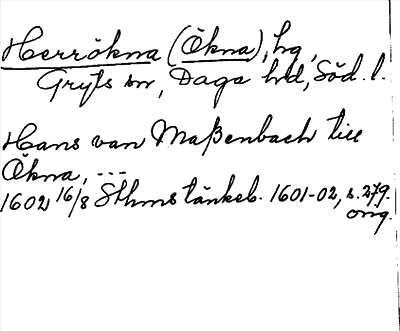 Herrökna (Ökna), hg,
Gryts sn, Daga hd, Söd. l.
Hans van Maßenbach till
Ökna, ...
1602 16/8 Sthms tänkeb. 1601-02, s. 279.
orig.